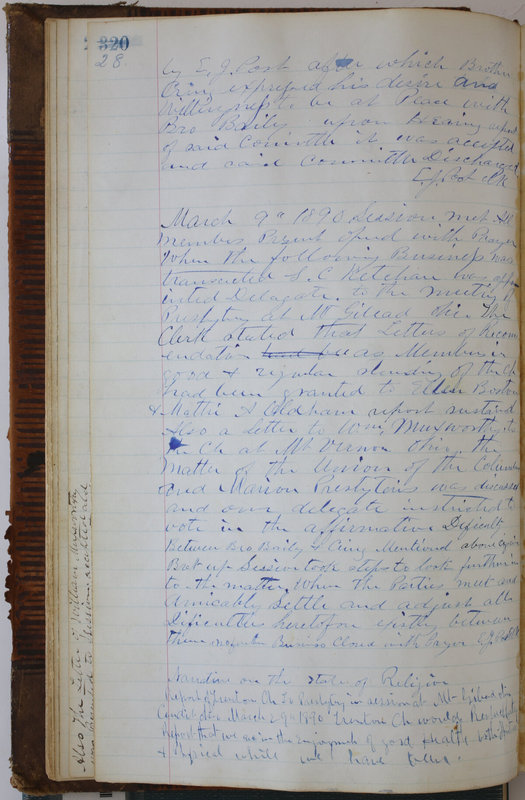 320
28.
by E. J. Post after which Brother
Cring expressed his desire and
willingness to be at Peace with
Bro Baily upon Hearing report
of said Committe it was accepted
and said Committe Discharged
E J Post Clk
March 9th 1890 Session met All
members Present Opend with Prayer
When the following Business was
transacted S. C. Ketcham was appo
inted Delagate to the meeting of
Presbytry at Mt Gilead Ohio The
Clerk stated that Letters of Recom
endation as Member in
good & rigular standing of the Ch
had been granted to Ellen Boston
& Mattie A Oldham report sustaind
Also a Letter to Wm Munsworthy to
the Ch at Mt Vernon Ohio the
Matter of the Union of the Columbus
and Marion Presbytris was discussed
and our delegate instructed to
vote in the affirmative Difficulty
Between Bro Baily & Cring Mentioned above again
Brot up Session took steps to look further in
to the matter, When the Parties met and
Amicably Settle and adjust all
Dificulties heretofore existing between
them no further Business Closed with Prayer E J Post Clk
Narative on the State of Religion
Report of Trenton Ch To Presbytry in session at Mt Gilead Ohio
March 29th 1890 Trenton Ch would Respectfully
Report that we are in the enjoyment of good Health both
& while we have been
Also the Letter of William Munsworthy
was presented to Session